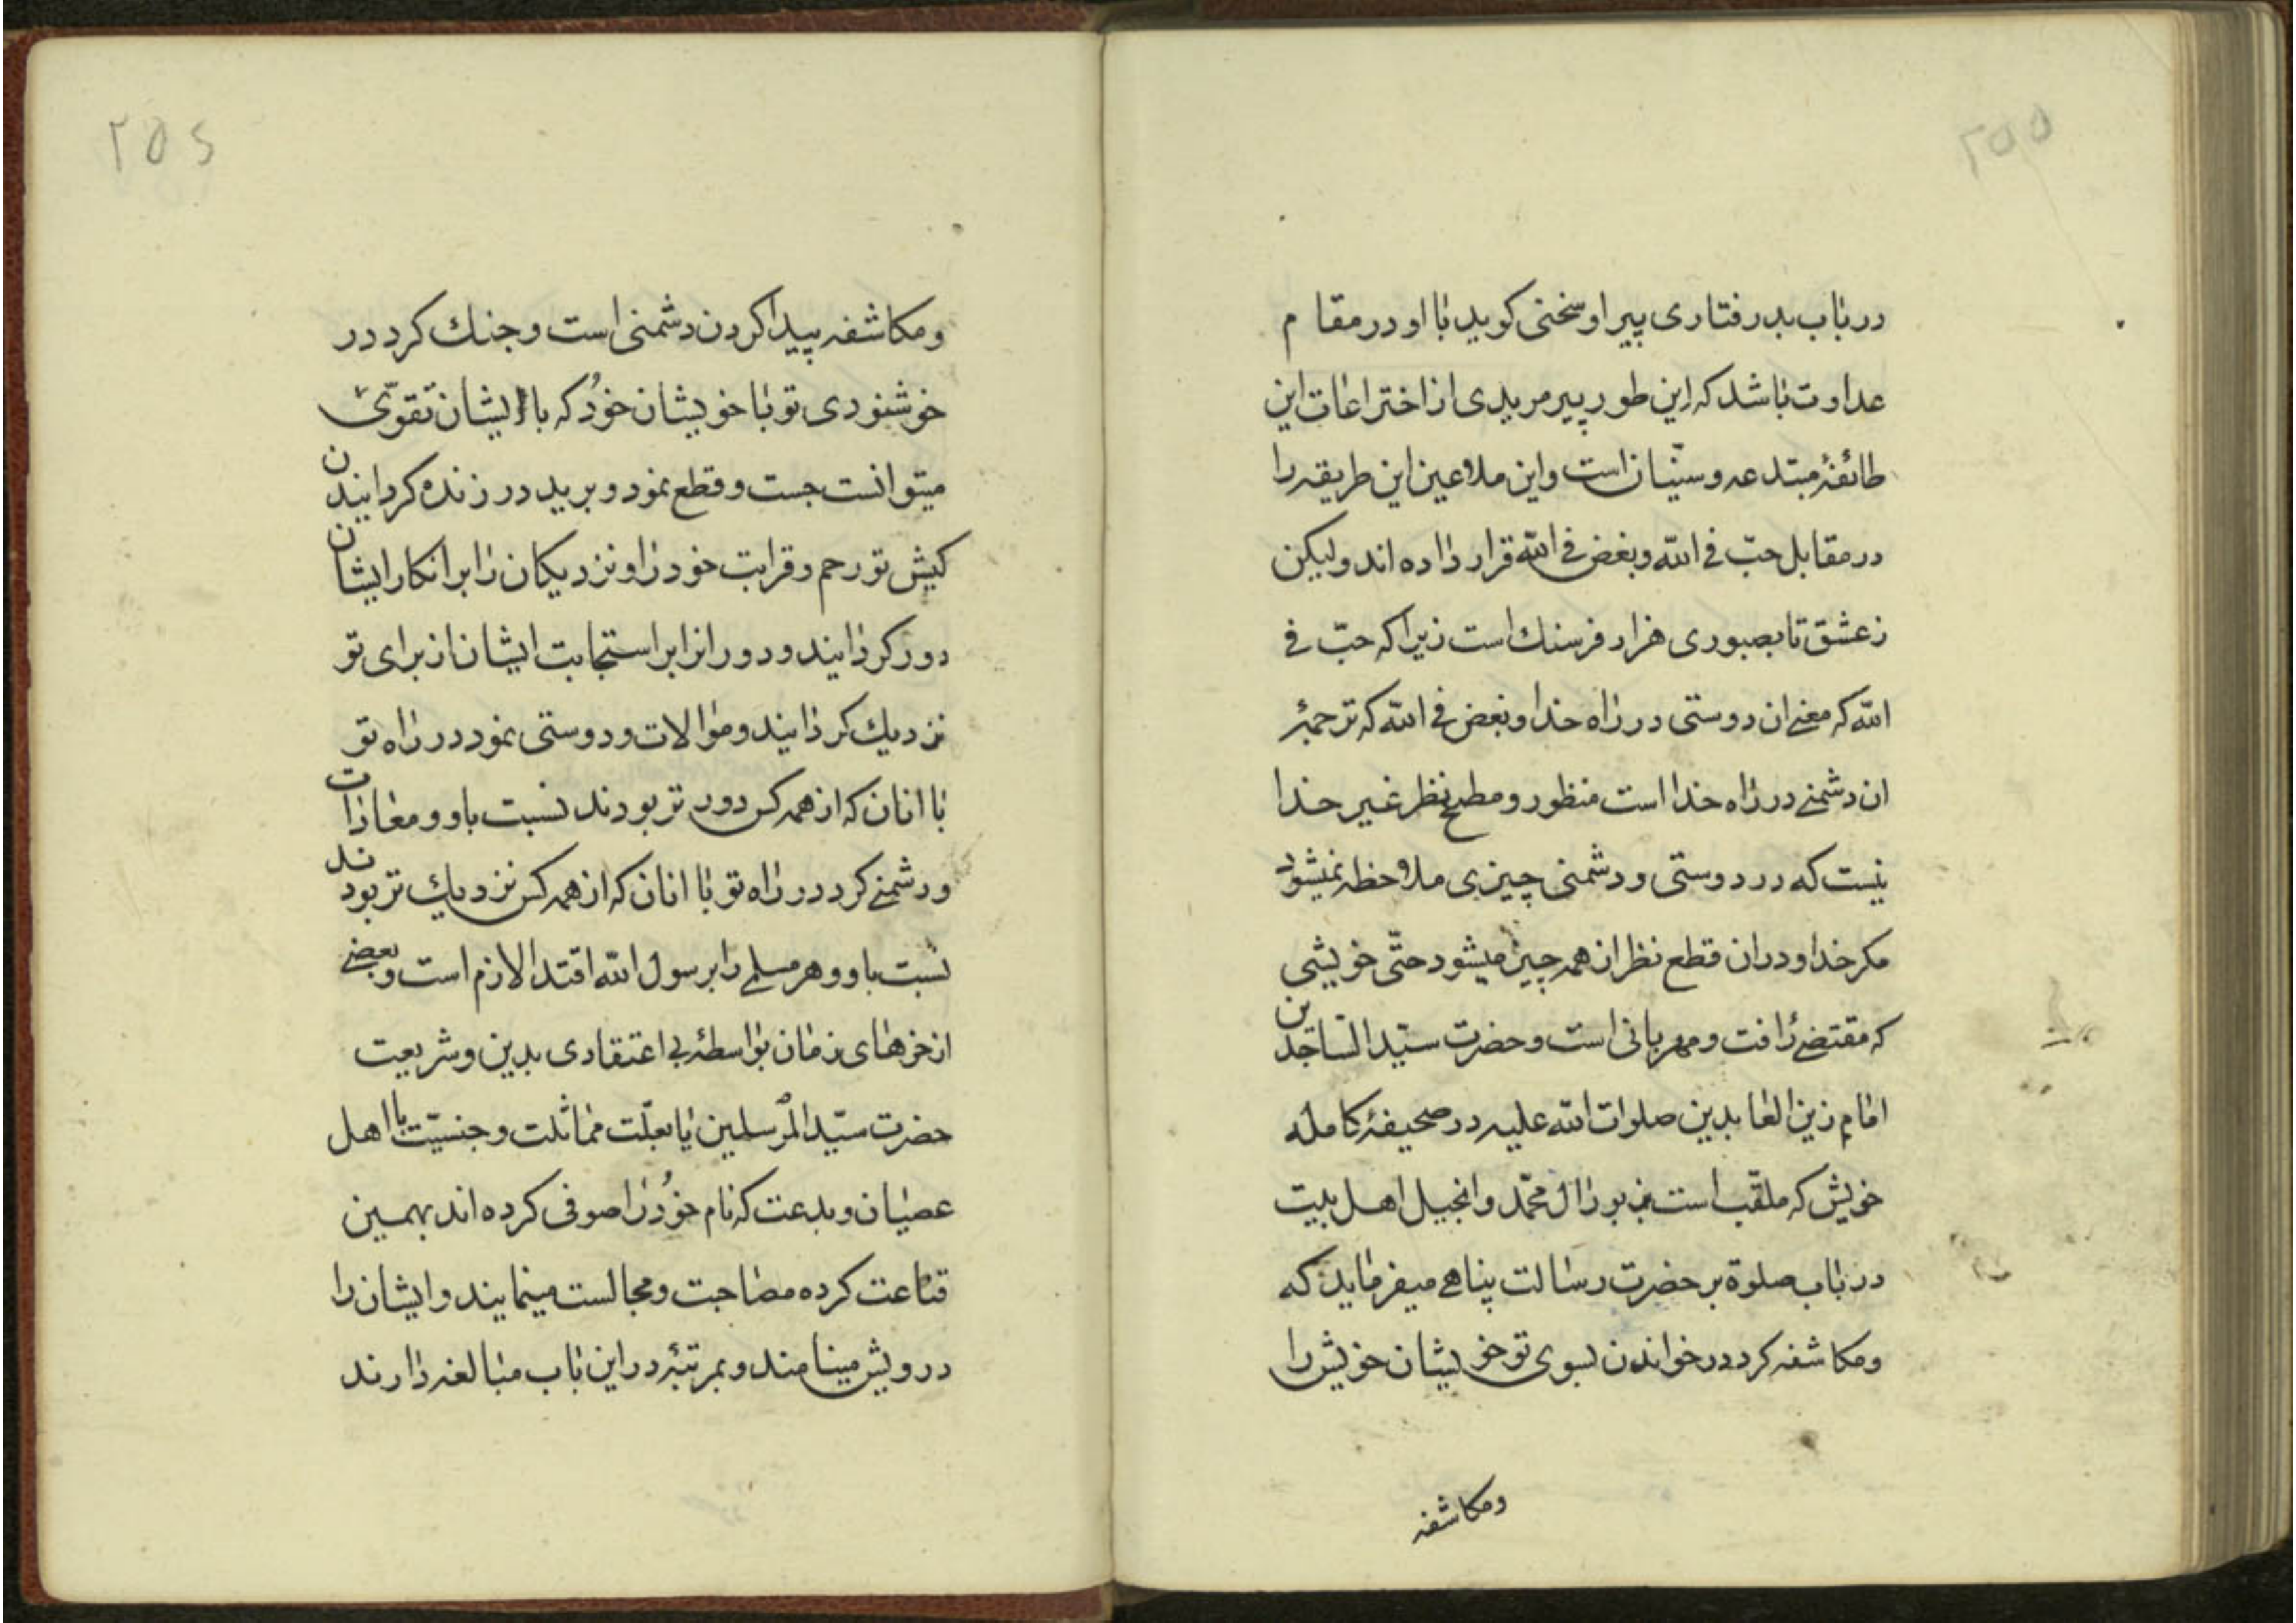 ۲۵۵
در باب بدرفتاری پیر او سخنی کوید با او در مقام
عداوت باشد که این طور پیر مریدی از اختراعات این
طائفهٔ مبتدعه و سنّیان است و این ملاعین این طریقه را
در مقابل حبّ فی الله و بغض فی الله قرار داده اند ولیکن
ز عشق تا بصبوری هزار فرسنك است زیرا که حبّ فی
الله که معنی ان دوستی در راه خدا و بغض فی الله که ترجمهٔ
ان دشمنی در راه خدا است منظور و مطمح نظر غیر خدا
نیست که در دوستی و دشمنی چیزی ملاحظه نمیشود
مکر خدا و در ان قطع نظر از همه چیز میشود حتّی خویشی
که مقتضی رافت و مهربانی است و حضرت سیّد الساجدین
امام زین العابدین صلوات الله علیه در صحیفهٔ کامله
خویش که ملقّب است بزبور ال محمّد و انجیل اهل بیت
در باب صلوة بر حضرت رسالت پناهی میفرماید که
ومکاشفه کرد در خواندن بسوی تو خویشان خویش را
ومکاشفه
۲۵۶
ومکاشفه پیدا کردن دشمنی است و جنك کرد در
خوشنودی تو با خویشان خود که با ایشان تقوّی
میتوانست جست و قطع نمود و برید در زنده کردانیدن
کیش تو رحم و قرابت خود را و نزدیکان را بر انکار ایشان
دور کردانید و دورانرا بر استجابت ایشان از برای تو
نزدیك کردانید و موالات و دوستی نمود در راه تو
با انان که از همه کس دور تر بودند نسبت باو و معادات
و دشمنی کرد در راه تو با انان که از همه کس نزدیك تر بودند
نسبت باو و هر مسلمی را بر رسول الله اقتدا لازم است و بعضی
از خرهای زمان بواسطهٔ بی اعتقادی بدین و شریعت
حضرت سیّد المرسلین یا بعلّت مماثلت و جنسیّت با اهل
عصیان و بدعت که نام خود را صوفی کرده اند بهمین
قناعت کرده مصاحبت و مجالست مینمایند و ایشان را
درویش مینامند و بمرتبهٔ در این باب مبالغه دارند